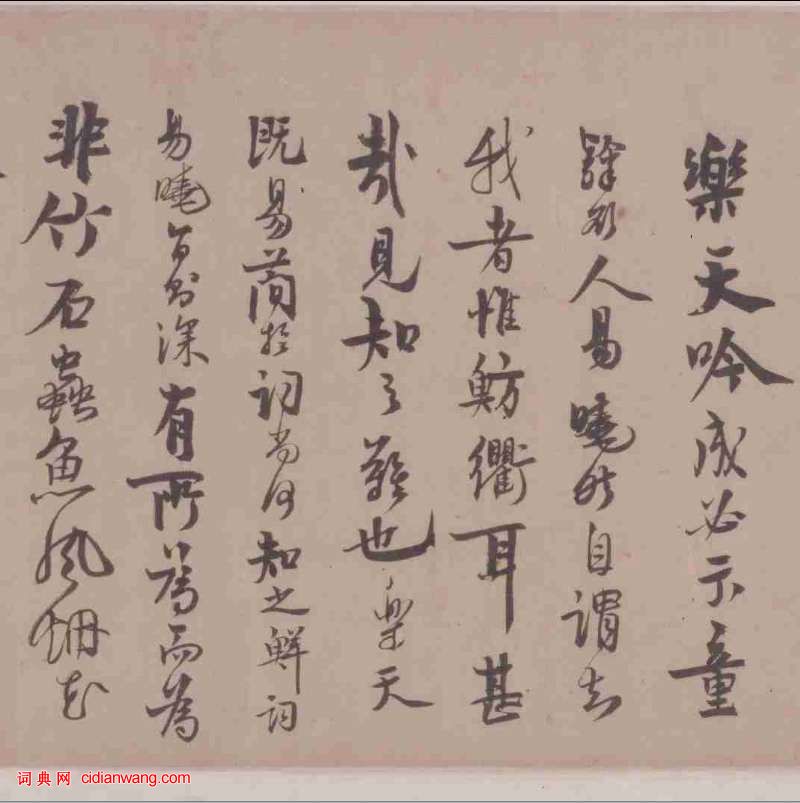 樂天吟成必示童
穉欲人易曉然自謂知
我者惟魴衢耳甚
哉見知之難也樂天
既易簡於詞尚何知之鮮詞
易曉旨則深有所為而為
非竹石蟲魚風花
词典网 cidianwang.com